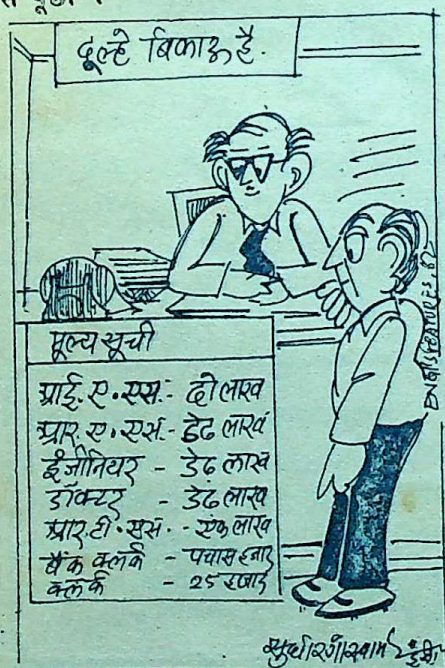 दूल्हे बिकाऊ है.
मूल्य सूची
आई. ए. एस. - दो लाख
आर. ए. एस. - डेढ लाख
इंजीनियर - डेढ लाख
डॉक्टर - डेढ लाख
आर. टी. एस. - एक लाख
बैंक क्लर्क - पचास हजार
क्लर्क - 25 हजार
FEATURES 82